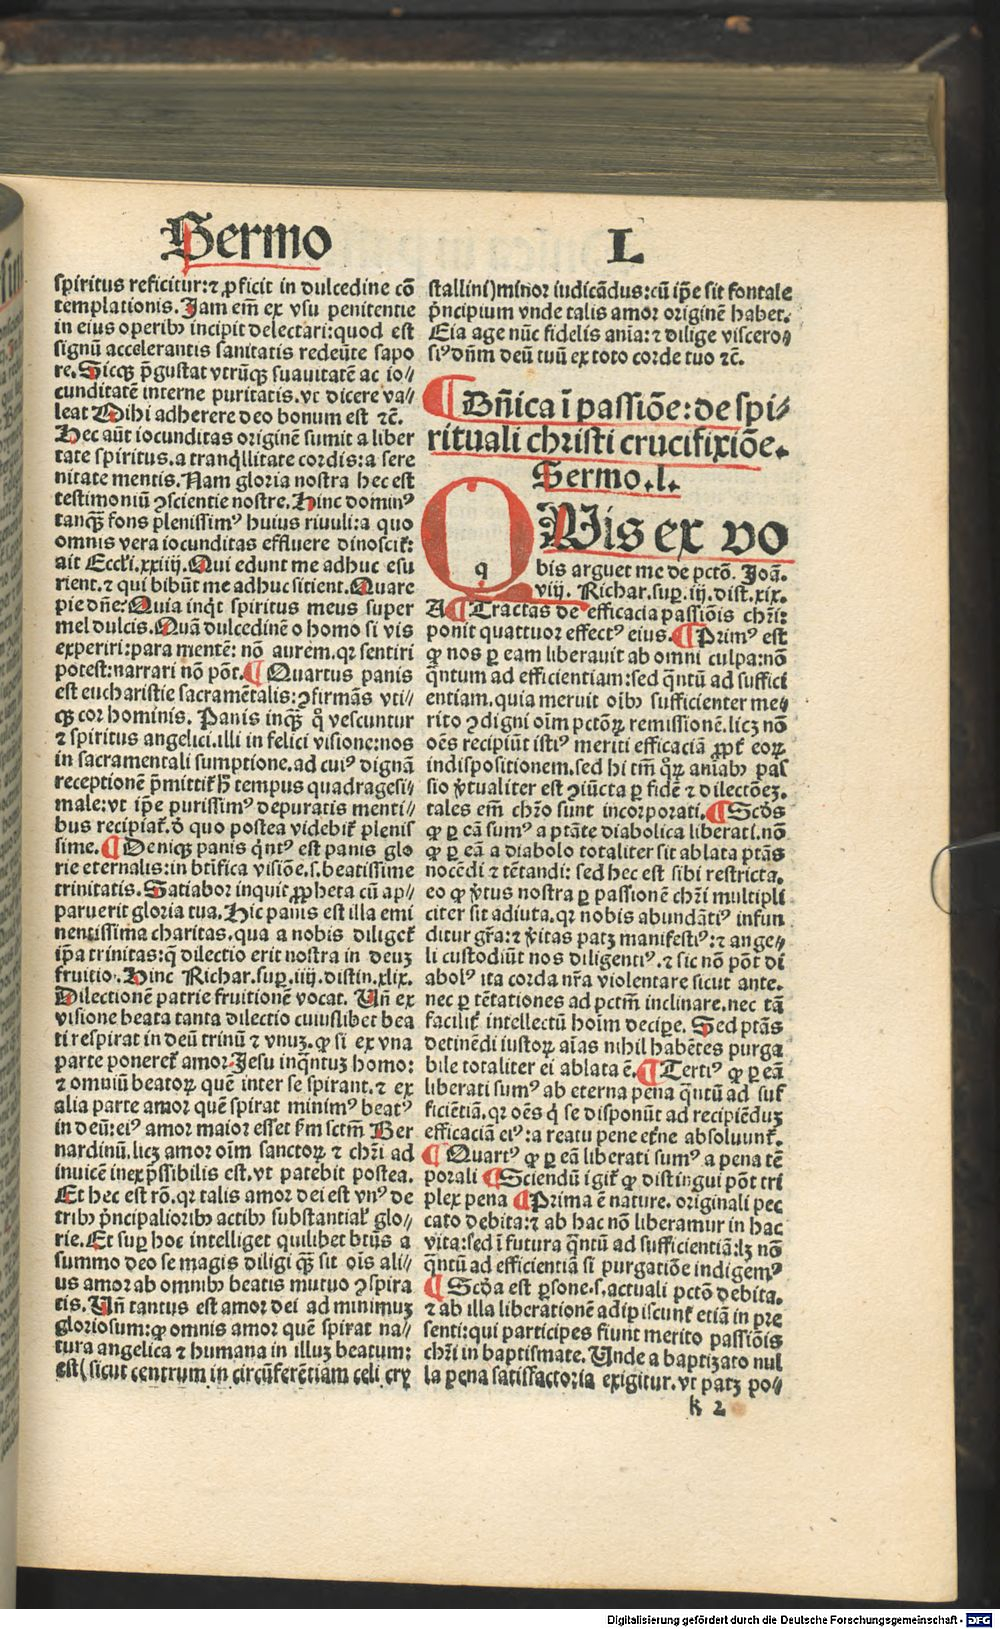 Sermo L
spiritus reficitur:⁊ ꝓficit in dulcedine cō
templationis. Jam em̄ ex vsu penitentie
in eius operibꝫ incipit delectari:quod est
signū accelerantis sanitatis redeūte sapo
re. Sicqꝫ p̄gustat vtrūqꝫ suauitatē ac io⸗
cunditatē interne puritatis. vt dicere va⸗
leat Mihi adherere deo bonum est ⁊c̄.
Hec aūt iocunditas originē sumit a liber
tate spiritus. a tranq̇llitate cordis:a sere
nitate mentis. Nam gloria nostra hec est
testimoniū ꝯscientie nostre. Hinc dominꝰ
tanqꝫ̄ fons plenissimꝰ huius riuuli:a quo
omnis vera iocunditas effluere dinoscit̄:
ait Eccl̄i.xxiiij. Qui edunt me adhuc esu
rient.⁊ qui bibūt me adhuc sitient. Quare
pie dn̄e: Quia inq̇t spiritus meus super
mel dulcis. Quā dulcedinē o homo si vis
experiri:para mentē: nō aurem. qꝛ sentiri
potest:narrari nō pōt. ¶ Quartus panis
est eucharistie sacramētalis: ꝯfirmās vti⸗
qꝫ cor hominis. Panis inqꝫ̄ q̊ vescuntur
⁊ spiritus angelici. illi in felici visione:nos
in sacramentali sumptione. ad cuiꝰ dignā
receptionē p̄mittit̄ h̄ tempus quadragesi⸗
male:vt ip̄e purissimꝰ depuratis menti⸗
bus recipiat̄. d̄ quo postea videbit̄ plenis
sime. ¶ Deniqꝫ panis q̇ntꝰ est panis glo
rie eternalis:in bt̄ifica visiōe.s. beatissime
trinitatis. Satiabor inquit ꝓpheta cū ap⸗
paruerit gloria tua. Hic panis est illa emi
nentissima charitas. qua a nobis diliget̄
ip̄a trinitas:q̄ dilectio erit nostra in deuꝫ
fruitio. Hinc Richar. suꝑ.iiij.distin.xlix.
Dilectionē patrie fruitionē vocat. Un̄ ex
visione beata tanta dilectio cuiuslibet bea
ti respirat in deū trinū ⁊ vnuꝫ. ꝙ si ex vna
parte poneret̄ amor Jesu inq̄ntuꝫ homo:
⁊ omniū beatoꝝ quē inter se spirant.⁊ ex
alia parte amor quē spirat minimꝰ beatꝰ
in deū:eiꝰ amor maior esset fm sctm̄ Ber
nardinū. licꝫ amor oīm sanctoꝝ ⁊ chr̄i ad
inuicē inexp̄ssibilis est. vt patebit postea.
Et hec est rō. qꝛ talis amor dei est vnꝰ de
tribꝫ p̄ncipalioribꝫ actibꝫ substantial̄ glo⸗
rie. Et suꝑ hoc intelliget quilibet bt̄us a
summo deo se magis diligi qꝫ̄ sit oīs ali⸗
us amor ab omnibꝫ beatis mutuo ꝯspira
tis. Un̄ tantus est amor dei ad minimuꝫ
gloriosum:ꝙ omnis amor quē spirat na⸗
tura angelica ⁊ humana in illuꝫ beatum:
est (sicut centrum in circūferētiam celi cry
stallini) minor iudicādus:cū ip̄e sit fontale
p̄ncipium vnde talis amor originē habet.
Eia age nūc fidelis aīa:⁊ dilige viscero⸗
siꝰ dn̄m deū tuū ex toto corde tuo ⁊c̄.
¶ Dn̄ica ī passiōe:de spi⸗
rituali christi crucifixiōe.
Sermo.l.
q QUis ex vo
bis arguet me de pctō. Joā.
viij. Richar. suꝑ.iij.dist.xix.
A ¶ Tractas de efficacia passiōis chr̄i:
ponit quattuor effectꝰ eius. ¶ Primꝰ est
ꝙ nos ꝑ eam liberauit ab omni culpa:nō
q̄ntum ad efficientiam:sed q̄ntū ad suffici
entiam. quia meruit oībꝫ sufficienter me⸗
rito ꝯdigni oīm pctōꝝ remissionē. licꝫ nō
oēs recipiūt istiꝰ meriti efficaciā ꝓpt̄ eoꝝ
indispositionem. sed hi tm̄ quoꝝ aīabꝫ pas
sio v̄tualiter est ꝯiūcta ꝑ fidē ⁊ dilectōeꝫ.
tales em̄ chr̄o sunt incorporati. ¶ Scd̄s
ꝙ ꝑ eā sumꝰ a ptāte diabolica liberati. nō
ꝙ ꝑ eā a diabolo totaliter sit ablata ptās
nocēdi ⁊ tētandi: sed hec est sibi restricta.
eo ꝙ v̄tus nostra ꝑ passionē chr̄i multipli
citer sit adiuta. qꝛ nobis abundātiꝰ infun
ditur gr̄a:⁊ v̄itas patꝫ manifestiꝰ:⁊ ange⸗
li custodiūt nos diligentiꝰ.⁊ sic nō pōt di
abolꝰ ita corda nr̄a violentare sicut ante.
nec ꝑ tētationes ad pctm̄ inclinare. nec tā
facilit̄ intellectū hoīm decipe. Sed ptās
detinēdi iustoꝝ aīas nihil habētes purga
bile totaliter ei ablata ē. ¶ Tertiꝰ ꝙ ꝑ eā
liberati sumꝰ ab eterna pena q̄ntū ad suf
ficiētiā. qꝛ oēs q̇ se disponūt ad recipiēduꝫ
efficaciā eiꝰ:a reatu pene et̄ne absoluunt̄.
¶ Quartꝰ ꝙ ꝑ eā liberati sumꝰ a pena tē
porali ¶ Sciendū igit̄ ꝙ distingui pōt tri
plex pena ¶ Prima ē nature. originali pec
cato debita:⁊ ab hac nō liberamur in hac
vita:sed ī futura q̄ntū ad sufficientiā:lꝫ nō
q̄ntū ad efficientiā si purgatiōe indigemꝰ
¶ Scd̄a est ꝑsone.s.actuali pctō debita.
⁊ ab illa liberationē adipiscunt̄ etiā in pre
senti:qui participes fiunt merito passiōis
chr̄i in baptismate. Unde a baptizato nul
la pena satisfactoria exigitur. vt patꝫ po⸗
k 2
Digitalisierung gefördert durch die Deutsche Forschungsgemeinschaft - DFG